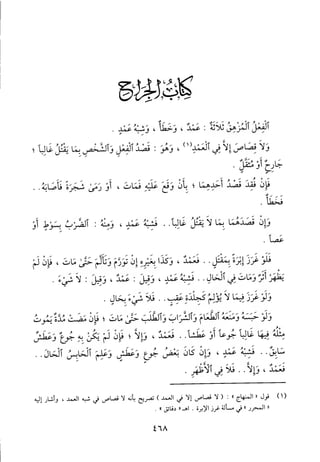 كتاب الجراح
اَلْفِعْلُ اَلْمُزْهِقُ ثَلَاثَةٌ : عَمْدٌ ، وَخَطَأٌ ، وَشِبْهُ عَمْدٍ .
وَلَا قِصَاصَ إِلَّا فِي اَلْعَمْدِ (١) ، وَهُوَ : قَصْدُ اَلْفِعْلِ وَاَلشَّخْصِ بِمَا يَقْتُلُ غَالِباً ؛
جَارِحٌ أَوْ مُثَقَّلٌ .
فَإِنْ فُقِدَ قَصْدُ أَحَدِهِمَا ؛ بِأَنْ وَقَعَ عَلَيْهِ فَمَاتَ ، أَوْ رَمَىٰ شَجَرَةً فَأَصَابَهُ . .
فَخَطَأٌ .
وَإِنْ قَصَدَهُمَا بِمَا لَا يَقْتُلُ غَالِباً . . فَشِبْهُ عَمْدٍ ، وَمِنْهُ : اَلضَّرْبُ بِسَوْطٍ أَوْ
عَصاً .
فَلَوْ غَرَزَ إِبْرَةً بِمَقْتَلٍ . . فَعَمْدٌ ، وَكَذَا بِغَيْرِهِ إِنْ تَوَرَّمَ وَتَأَلَّمَ حَتَّىٰ مَاتَ ، فَإِنْ لَمْ
يَظْهَرْ أَثَرٌ وَمَاتَ فِي اَلْحَالِ . . فَشِبْهُ عَمْدٍ ، وَقِيلَ : عَمْدٌ ، وَقِيلَ : لَا شَيْءَ .
وَلَوْ غَرَزَ فِيمَا لَا يُؤْلِمُ كَجِلْدَةِ عَقِبٍ . . فَلَا شَيْءَ بِحَالٍ .
وَلَوْ حَبَسَهُ وَمَنَعَهُ اَلطَّعَامَ وَاَلشَّرَابَ وَاَلطَّلَبَ حَتَّىٰ مَاتَ ؛ فَإِنْ مَضَتْ مُدَّةٌ يَمُوتُ
مِثْلُهُ فِيهَا غَالِباً جُوعاً أَوْ عَطَشاً . . فَعَمْدٌ ، وَإِلَّا ؛ فَإِنْ لَمْ يَكُنْ بِهِ جُوعٌ وَعَطَشٌ
سَابِقٌ . . فَشِبْهُ عَمْدٍ ، وَإِنْ كَانَ بَعْضُ جُوعٍ وَعَطَشٍ وَعَلِمَ اَلْحَابِسُ اَلْحَالَ . .
فَعَمْدٌ ، وَإِلَّا . . فَلَا فِي اَلْأَظْهَرِ .
(١) قول « المنهاج » : ( لا قصاص إلا في العمد ) تصريح بأنه لا قصاص في شبه العمد ، وأشار إليه
« المحرر » في مسألة غرز الإبرة . اهـ « دقائق » .
٤٦٨